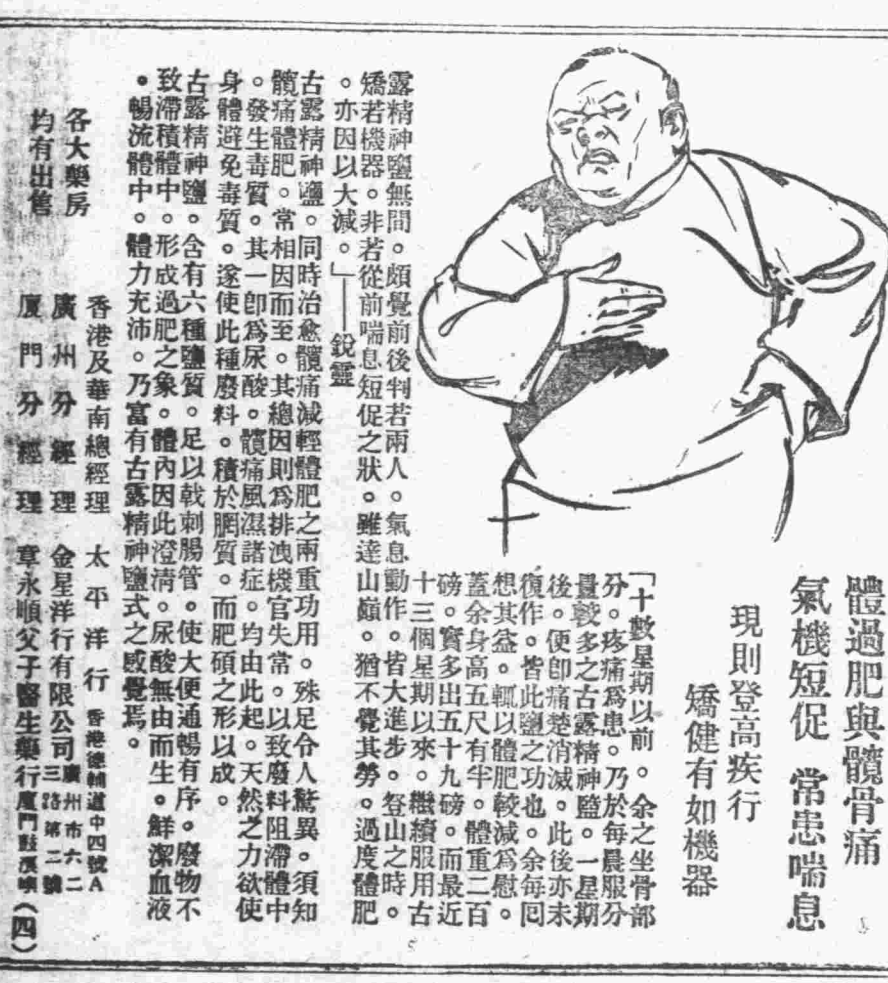 體過肥與髖骨痛
氣機短促 常患喘息
現則登高疾行
矯健有如機器
「十數星期以前。余之坐骨部
分。疼痛爲患。乃於每晨服分
量較多之古露精神鹽。一星期
後。便卽痛楚消滅。此後亦未
復作。皆此鹽之功也。余每囘
想其益。輒以體肥較減爲慰。
蓋余身高五尺有半。體重二百
磅。實多出五十九磅。而最近
十三個星期以來。繼續服用古
露精神鹽無間。頗覺前後判若兩人。氣息動作。皆大進步。登山之時。
矯若機器。非若從前喘息短促之狀。雖達山巔。猶不覺其勞。過度體肥
。亦因以大減。」——銳靈
古露精神鹽。同時治愈髖痛減輕體肥之兩重功用。殊足令人驚異。須知
髖痛體肥。常相因而至。其總因則爲排洩機官失常。以致廢料阻滯體中
。發生毒質。其一卽爲尿酸。髖痛風濕諸症。均由此起。天然之力欲使
身體避免毒質。遂使此種廢料。積於膶質。而肥碩之形以成。
古露精神鹽。含有六種鹽質。足以戟刺腸管。使大便通暢有序。廢物不
致滯積體中。形成過肥之象。體內因此澄淸。尿酸無由而生。鮮潔血液
。暢流體中。體力充沛。乃富有古露精神鹽式之感覺焉。
各大藥房
均有出售
香港及華南總經理 太平洋行 香港德輔道中四號A
廣州分經理 金星洋行有限公司 廣州市六二三路第二號
廈門分經理 章永順父子醫生藥行 廈門鼓浪嶼
(四)